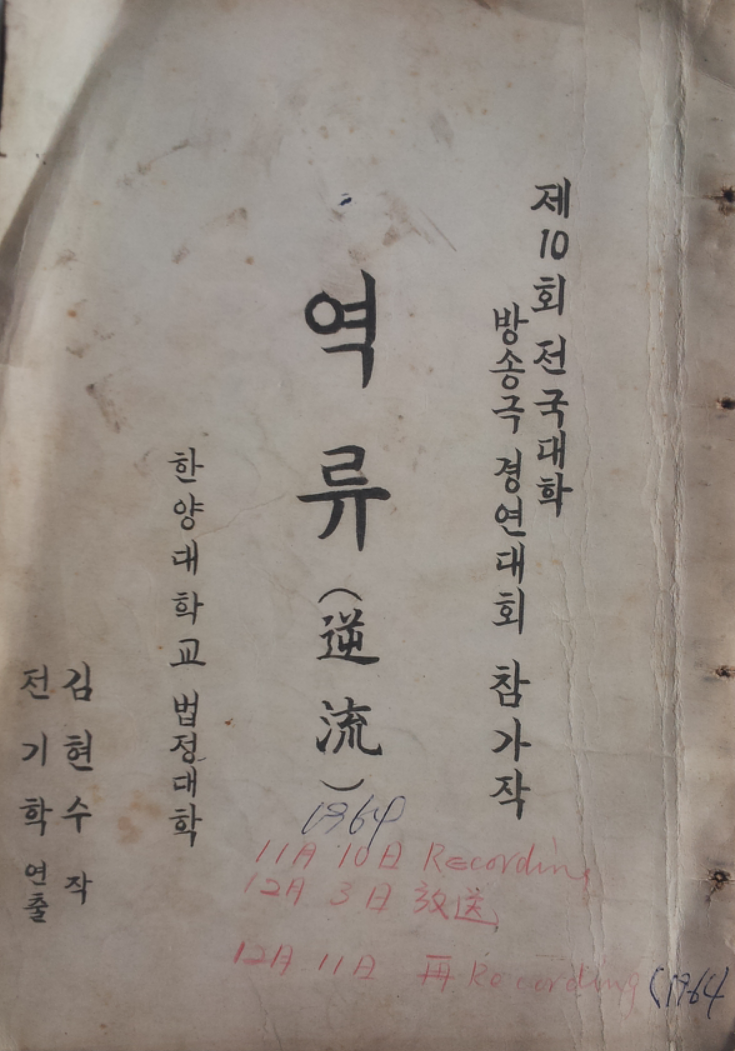 제10회 전국대학
방송극 경연대회 참가작
역류(逆流)
한양대학교 법정대학
김현수 작
전기학 연출
1964
11月 10日 Recording
12月 3日 放送
12月 11日 再Recording (1964